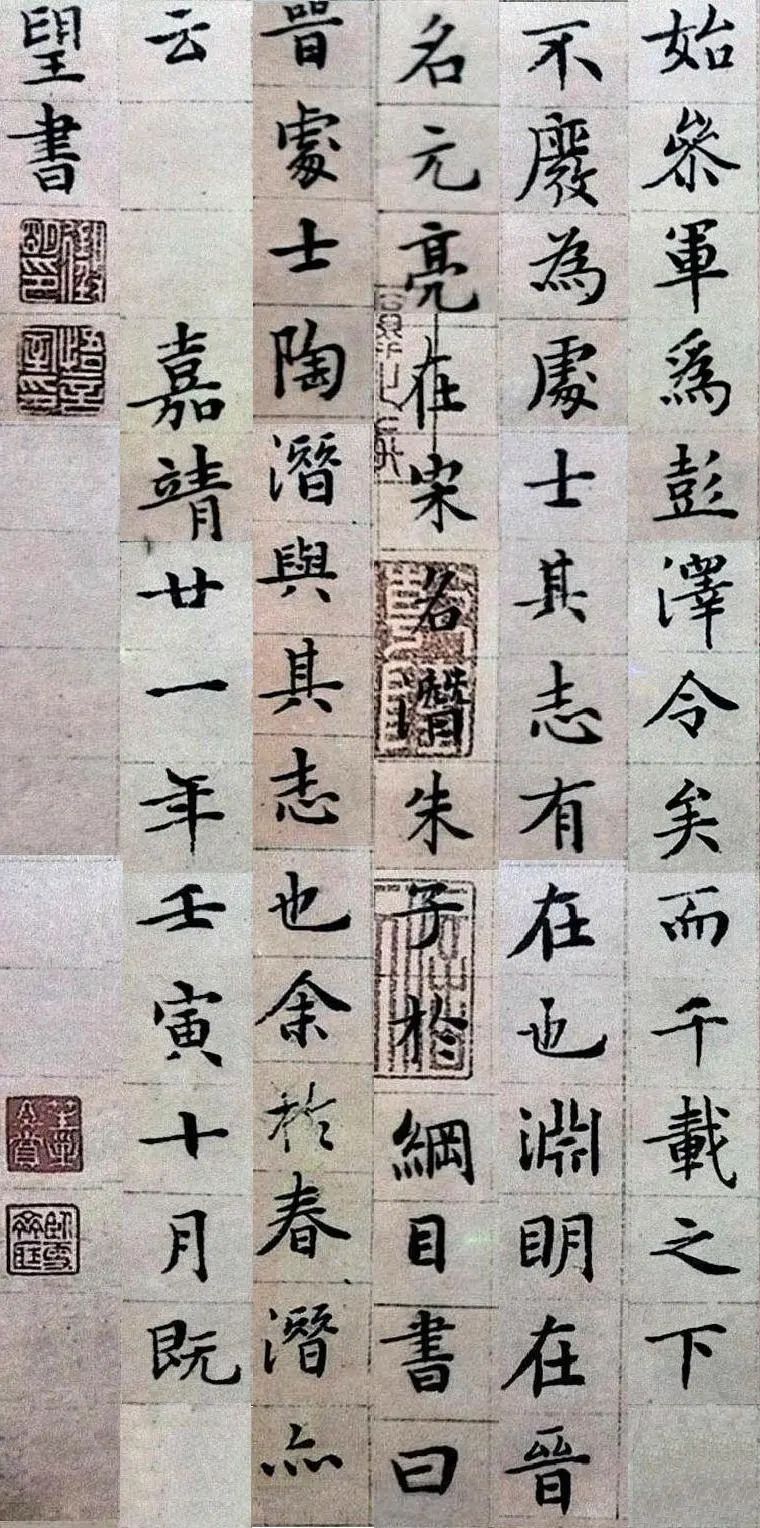 始叅軍爲彭澤令矣而千載之下
不廢為處士其志有在也淵明在晉
名元亮在宋名潛朱子於綱目書曰
晉處士陶潛與其志也余於春潛亦
云 嘉靖廿一年壬寅十月既
望書
徵明印
悟言室印